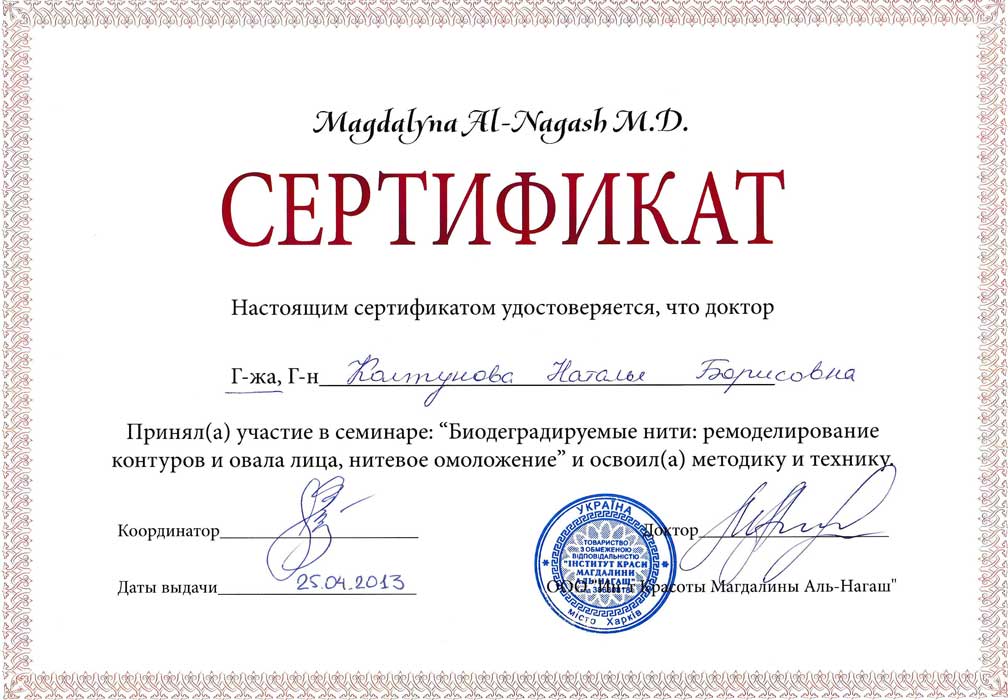 Magdalyna Al-Nagash M.D.
СЕРТИФИКАТ
Настоящим сертификатом удостоверяется, что доктор
Г-жа, Г-н Колтунова Наталья Борисовна
Принял(а) участие в семинаре: “Биодеградируемые нити: ремоделирование
контуров и овала лица, нитевое омоложение” и освоил(а) методику и технику.
Координатор
Доктор
Даты выдачи 25.04.2013
ООО "Ин-т Красоты Магдалины Аль-Нагаш"
УКРАЇНА
ТОВАРИСТВО
З ОБМЕЖЕНОЮ
ВІДПОВІДАЛЬНІСТЮ
"ІНСТИТУТ КРАСИ
МАГДАЛИНИ
АЛЬ-НАГАШ"
місто Харків